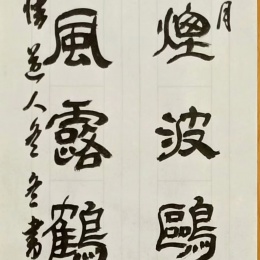 月
煙波鷗
風露鶴
道人冬冬書